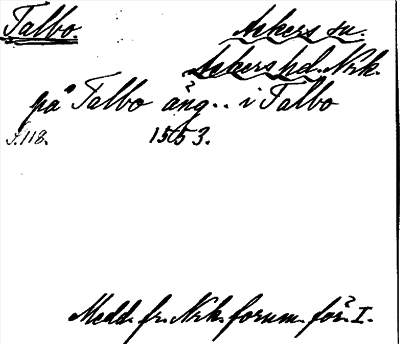 Talbo. Askers sn.
Askers hd. Nrk.
på Talbo äng .. i Talbo
S.118. 1553.
Medd. fr. Nrk. fornm. för. I.